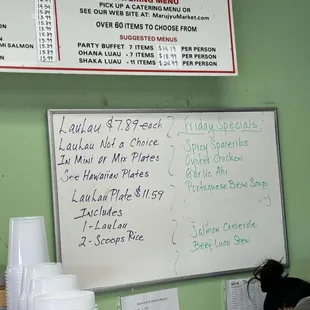 PICK UP A CATERING MENU OR
SEE OUR WEB SITE AT: MarujyuMarket.com
OVER 60 ITEMS TO CHOOSE FROM
SUGGESTED MENUS
PARTY BUFFET 7 ITEMS $14.19 PER PERSON
OHANA LUAU - 7 ITEMS $18.99 PER PERSON
SHAKA LUAU - 11 ITEMS $24.99 PER PERSON
SALMON
LauLau $7.89 each
LauLau Not a Choice
In Mini or Mix Plates
See Hawaiian Plates
LauLau Plate $11.59
Includes
1 - LauLau
2 - Scoops Rice
Friday Specials
Spicy Spareribs
Oyster Chicken
Garlic Ahi
Portuguese Bean Soup
Salmon Casserole
Beef Luau Stew